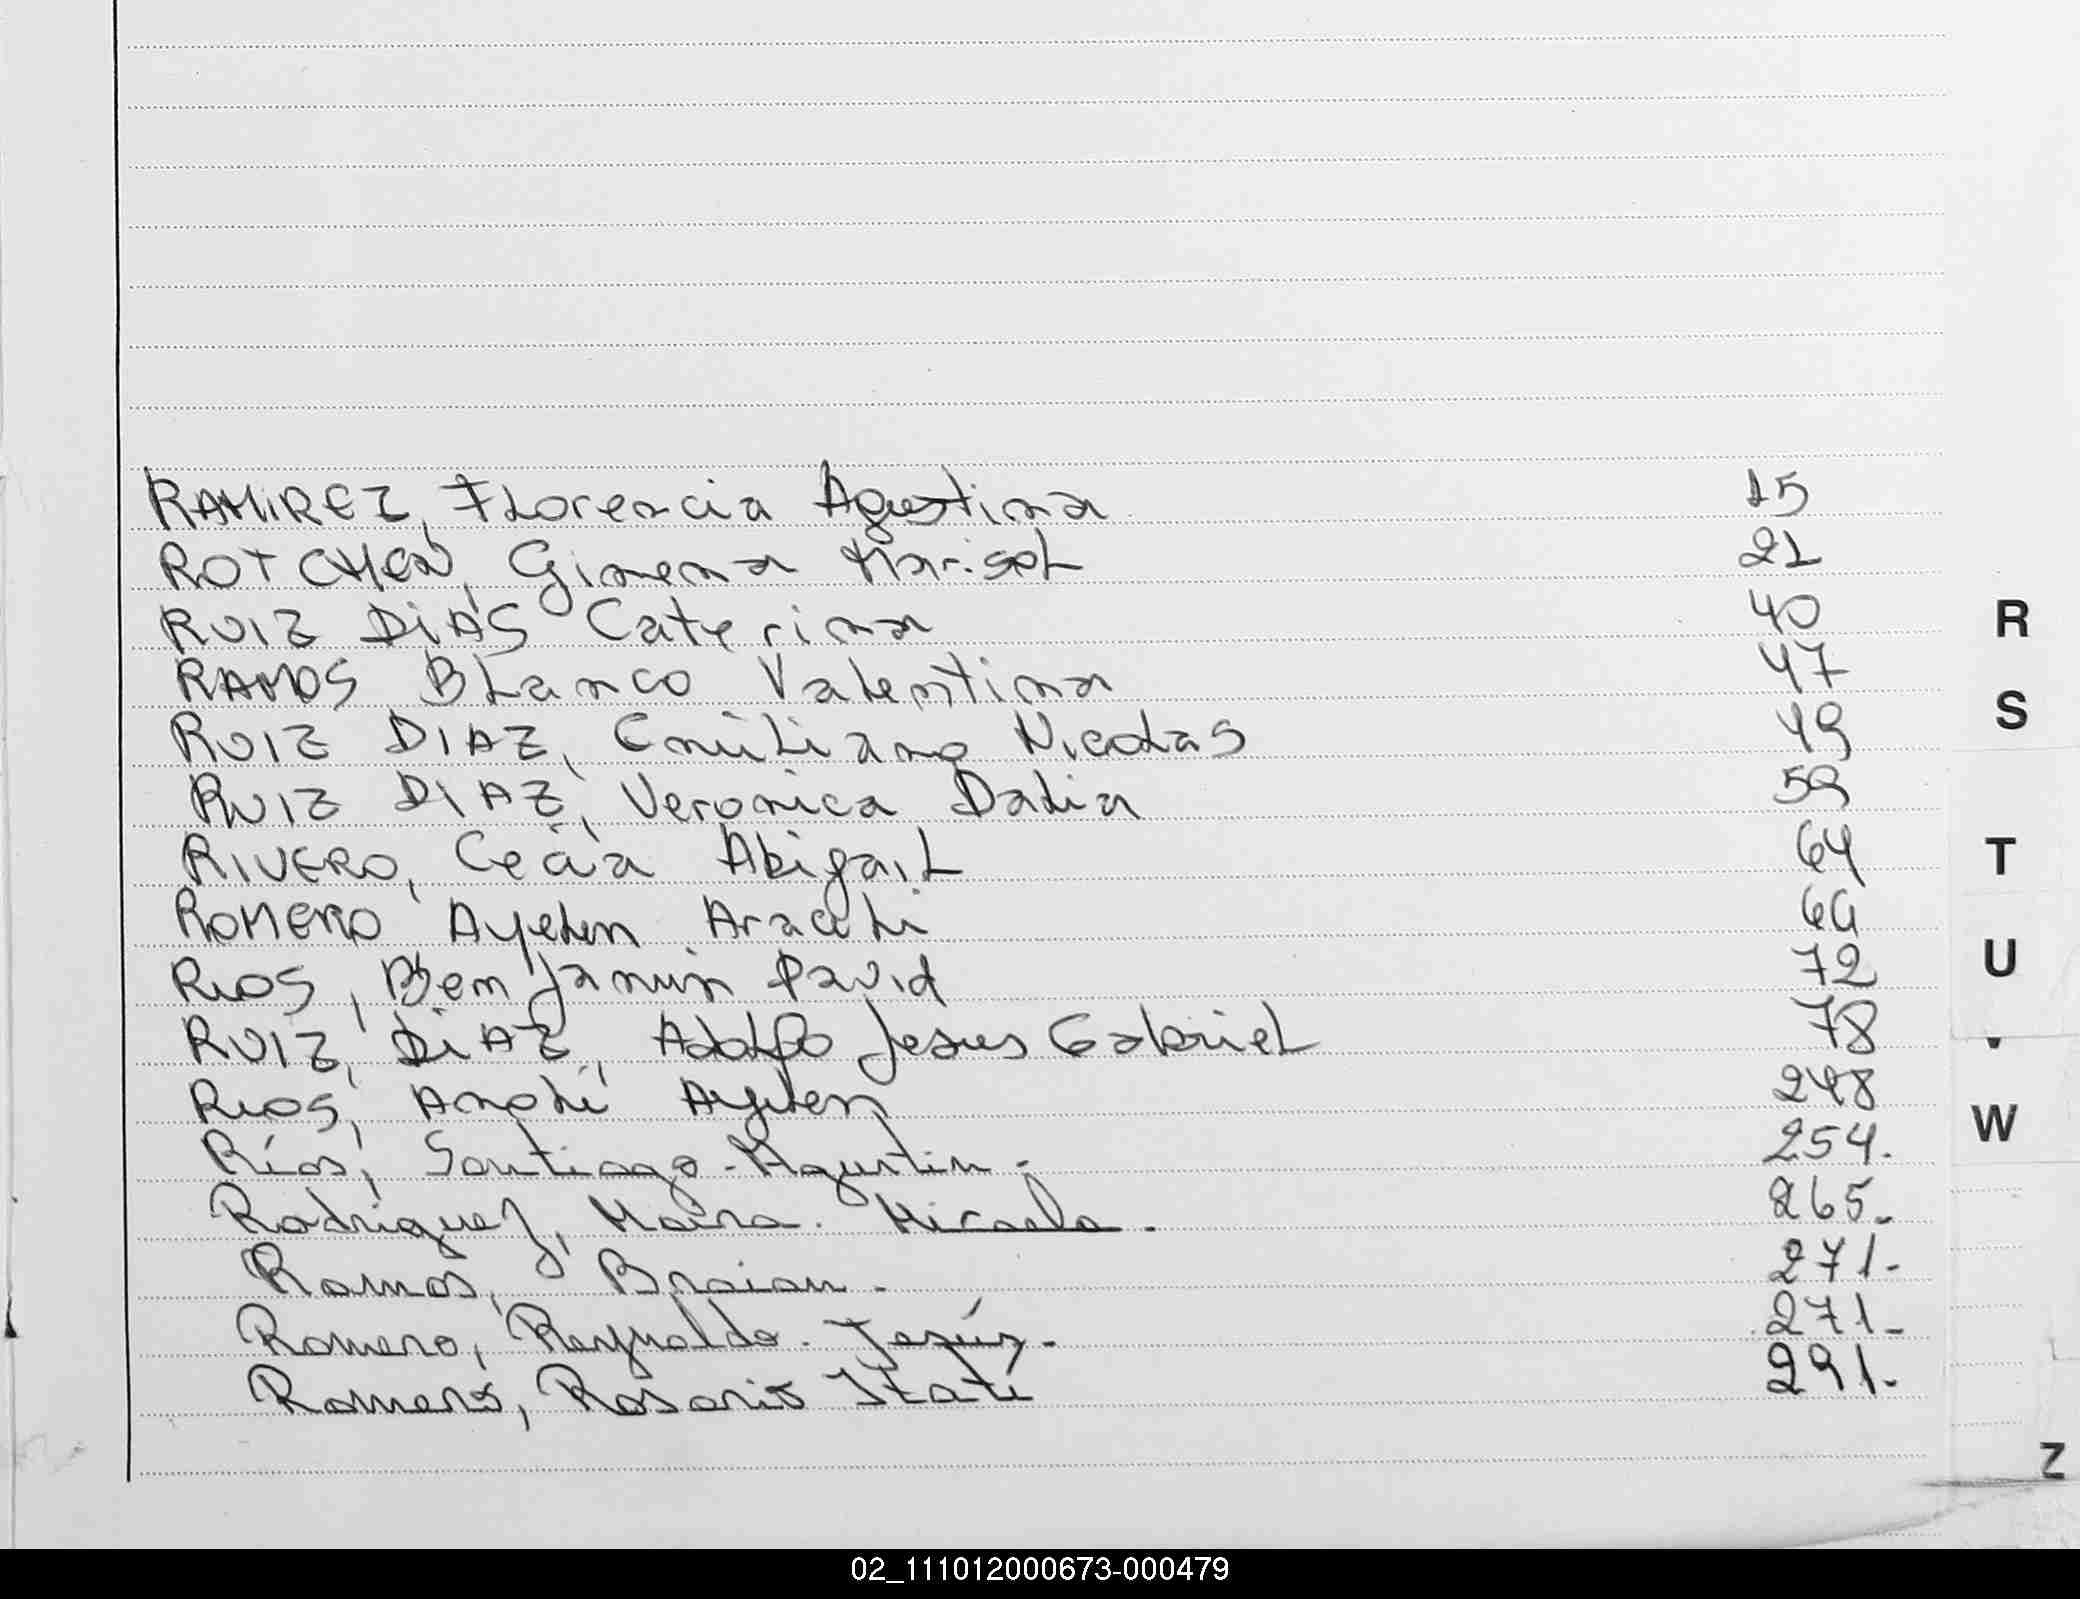 RAMIREZ, Florencia Agustina 15
ROTCHEN, Gimena Marisol 21
RUIZ DIAS Caterina 40
RAMOS Blanco Valentina 47
RUIZ DIAZ, Emiliano Nicolas 49
RUIZ DIAZ, Veronica Dalia 59
RIVERO, Abigail 64
ROMERO Ayelen Araceli
RIOS, Benjamin David 72
RUIZ, DIAZ, Adolfo Jesus Gabriel 78
RIOS, Ayelen 248
Ríos, Santiago - Agustin - 254.
Rodriguez, Maira. Micaela. 265.
Ramos, Braian - 271-
Romero, Reynaldo. Jesús - 271-
Romero, Rosario Itatí 291-
R
S
T
U
W
Z
02_111012000673-000479